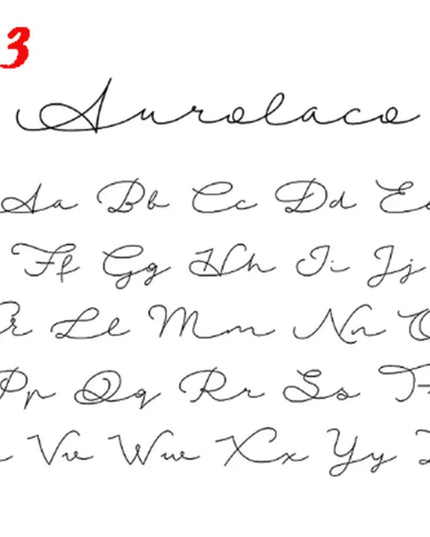 3
Aurolaco
Aa Bb Cc Dd Ee
Ff Gg Hh Ii Jj
Ll Mm Nn O
Pp Qq Rr Ss T
Vv Ww Xx Yy